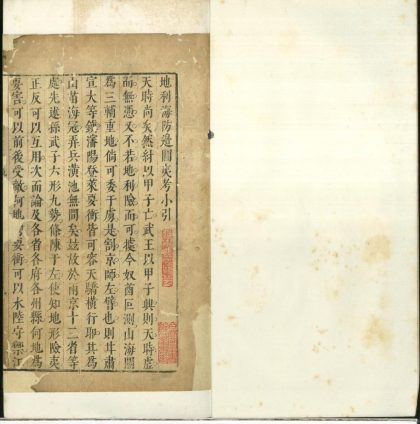 地利海防邊圖夷考小引
天時尚矣然紂以甲子亡武王以甲子興則天時虛
而無憑又不若地利險而可據今奴酋叵測山海關
為三輔重地倘可委于虜是割京師左臂也則井肅
宣大等鎮瀋陽登萊要衝皆可容天驕橫行耶其為
海冦弄兵潢池無間矣故於南京十三省等
處先逑孫武子六形九勢條陳于左使知地形險夷
正反可以互用次而論及各省各府各州縣何地為
要害可以前後受敵何地要衝可以水陸守禦江